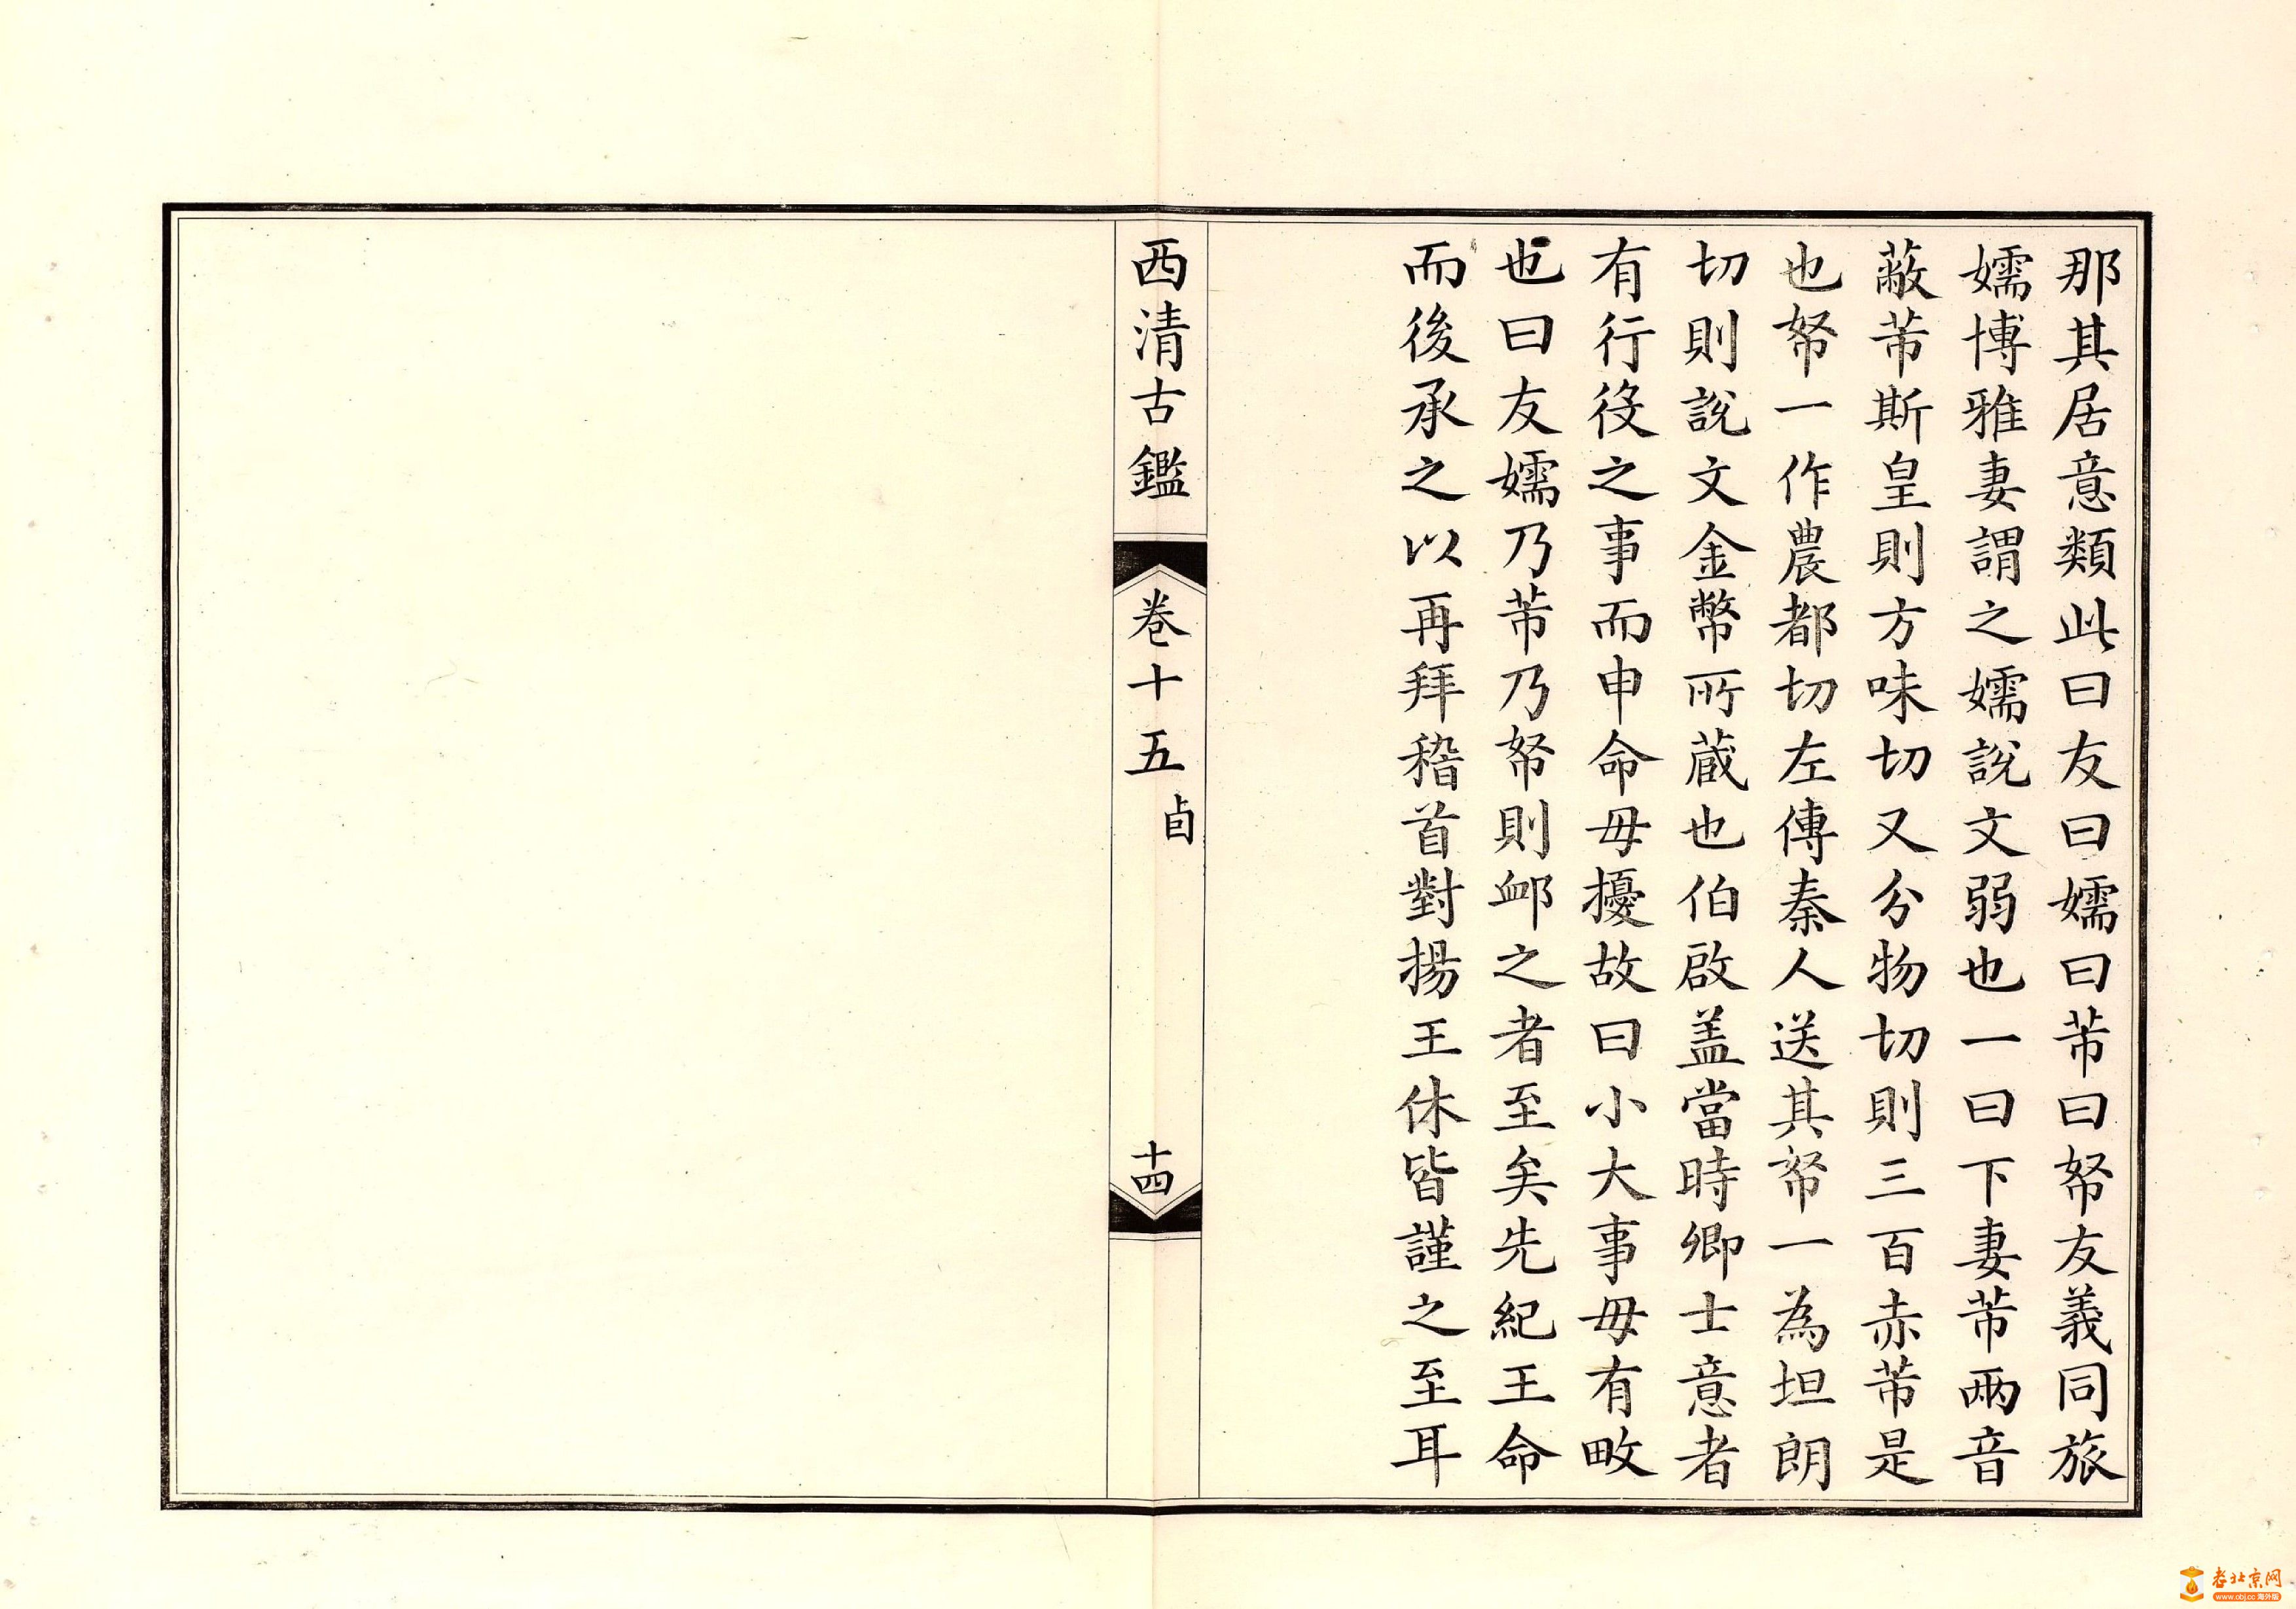 那其居意類此曰友曰嬬曰芾曰帑友義同旅
嬬博雅妻謂之嬬說文弱也一曰下妻芾兩音
蔽芾斯皇則方味切又分物切則三百赤芾是
也帑一作農都切左傳秦人送其帑一為坦朗
切則說文金幣所蔵也伯啟盖當時卿士意者
有行役之事而申命毋擾故曰小大事毋有畋
也曰友嬬乃芾乃帑則卹之者至矣先紀王命
而後承之以再拜稽首對揚王休皆謹之至耳
西清古鑑 卷十五 卣 十四
老北京网
www.obj.cc 海外版